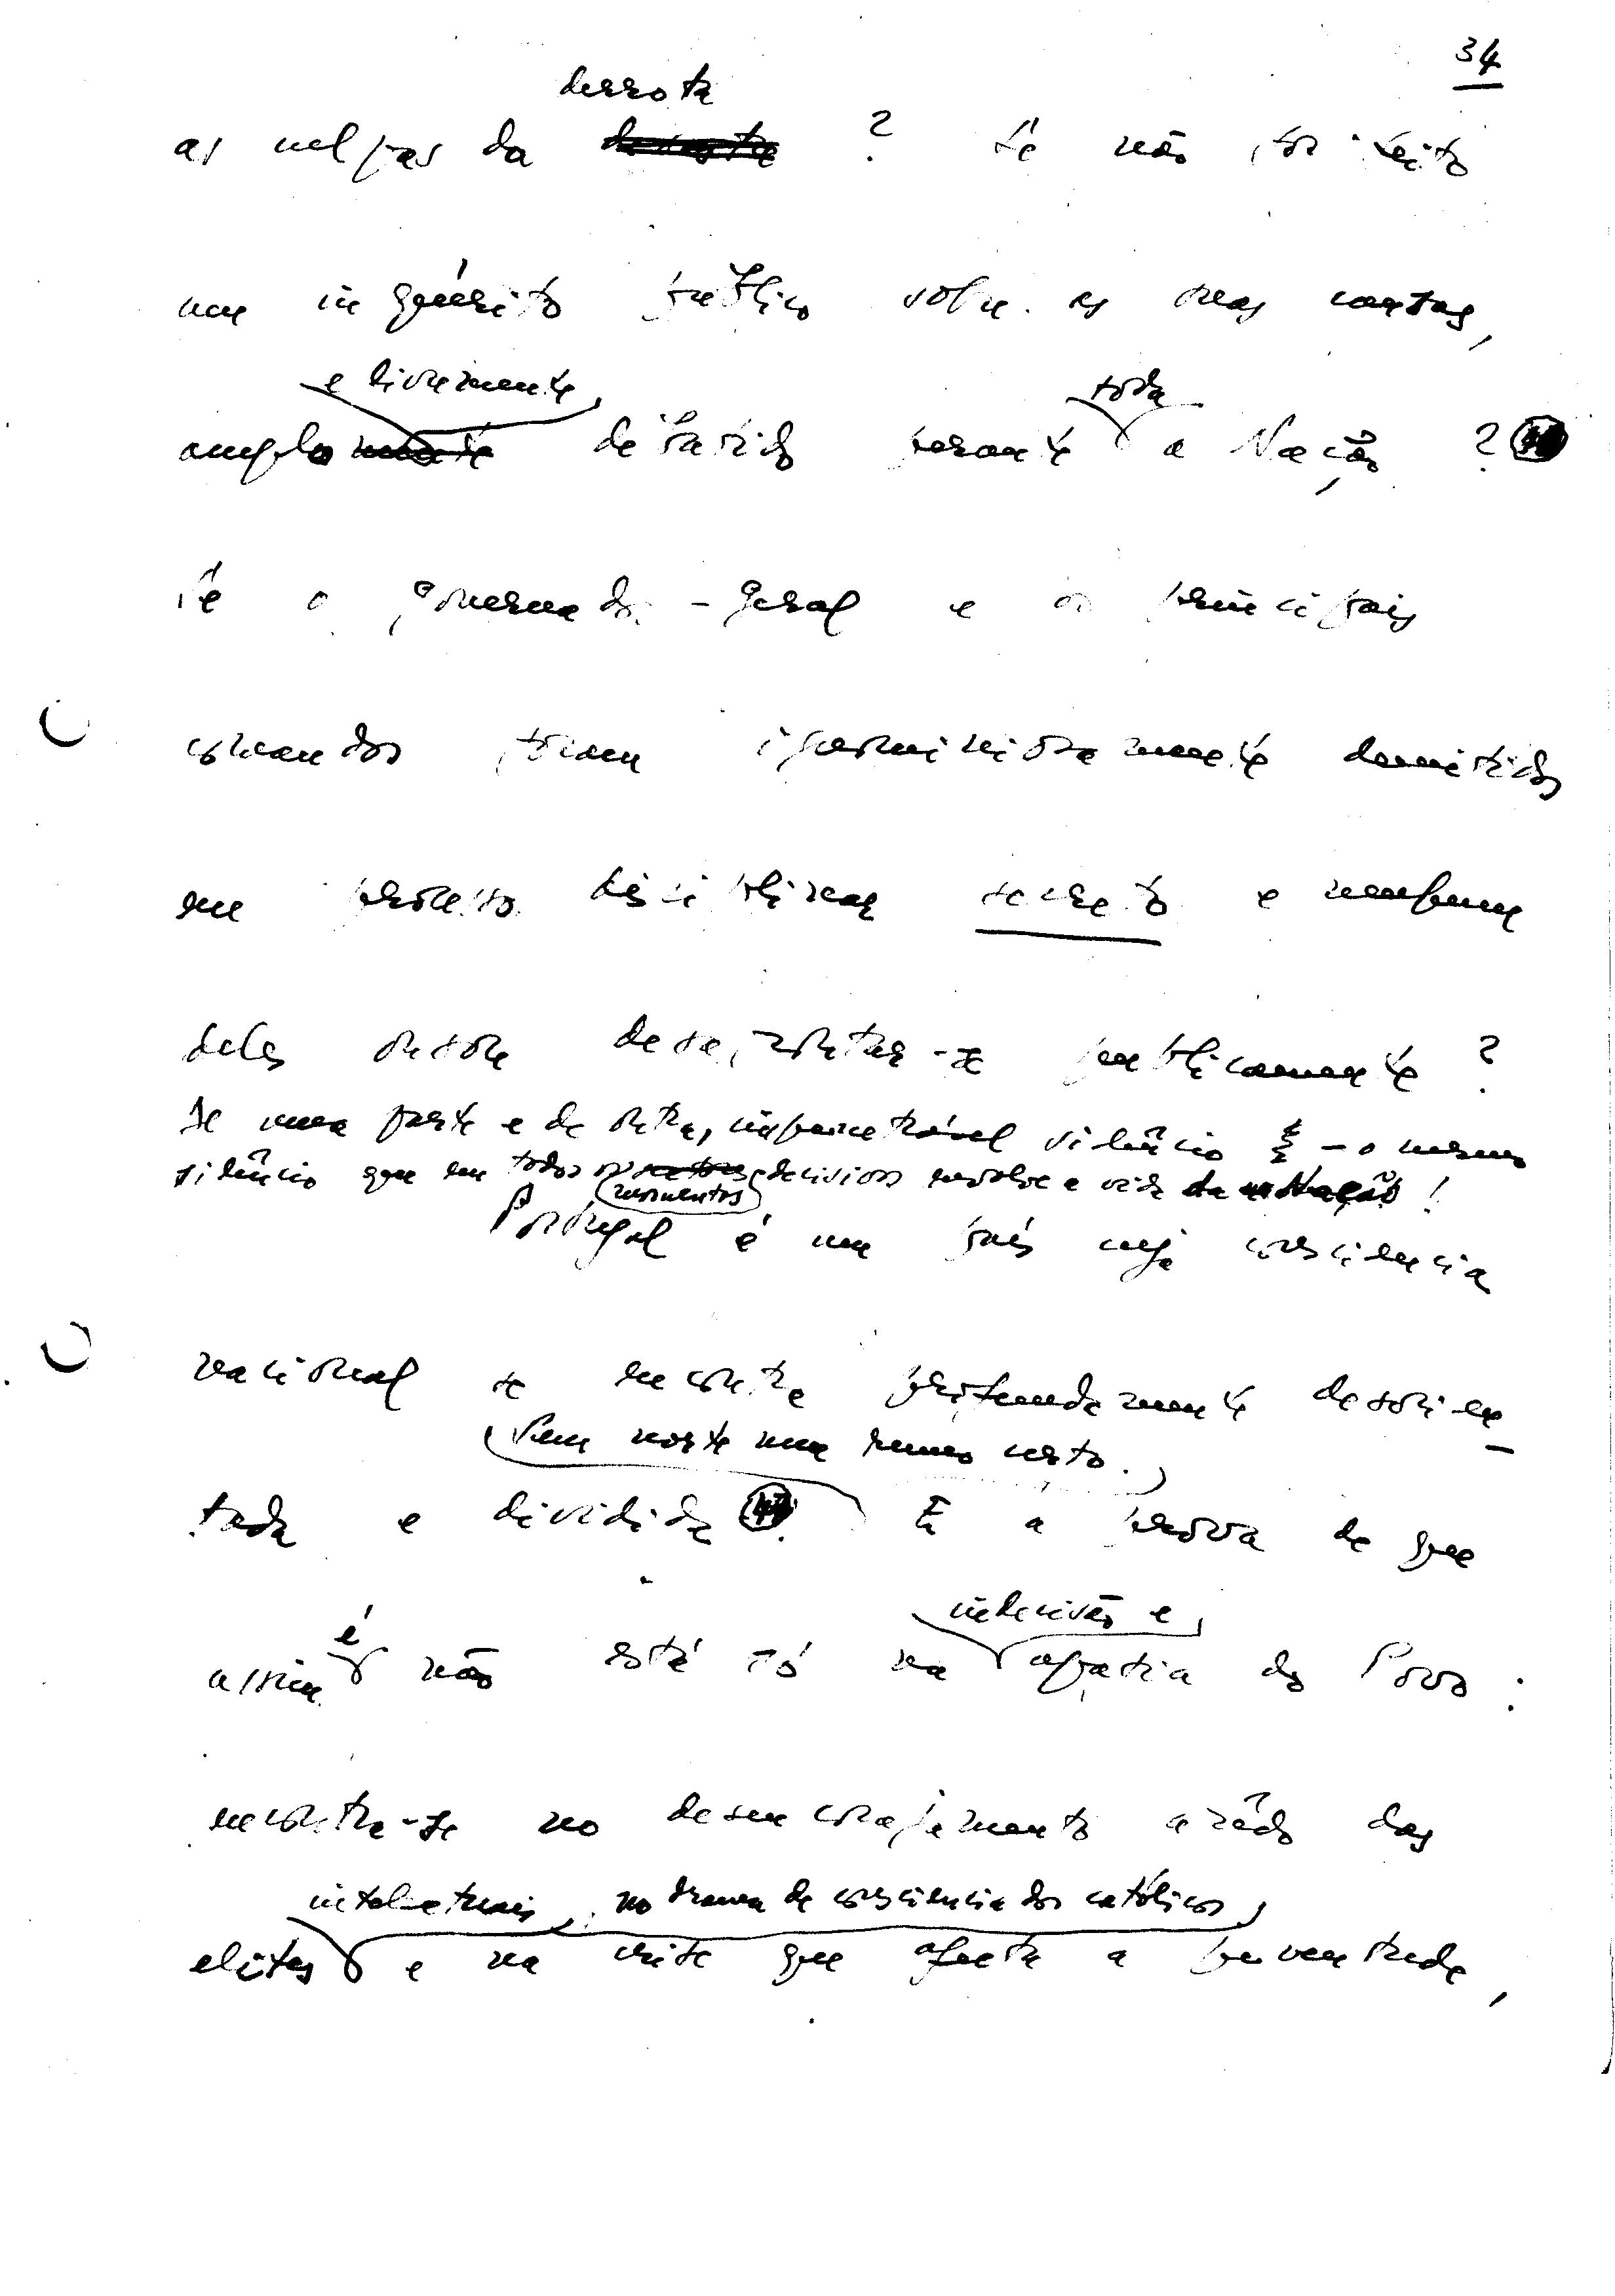 34
derrota
as culpas da desastre ? Se não foi feito
um inquérito público sobre as suas causas,
e livremente toda
amplamente debatido perante a Nação ?
Se o governador-geral e os principais
comandos foram ignominiosamente demitidos
em processo disciplinar secreto e nenhum
deles ousou desafrontar-se publicamente ?
De uma parte e de outra, impenetrável silêncio – o mesmo
silêncio que em todos os decisivos envolve a vida da Nação !
momentos
Portugal é um país cuja consciência
nacional se encontra profundamente desorien-
Sem norte nem rumo certo.
tada e dividida. E a prova de que
indecisão e
assim é não está só na apatia do Povo :
encontra-se no desencorajamento das
intelectuais, no drama de consciência dos católicos,
elites e na crise que afecta a juventude,